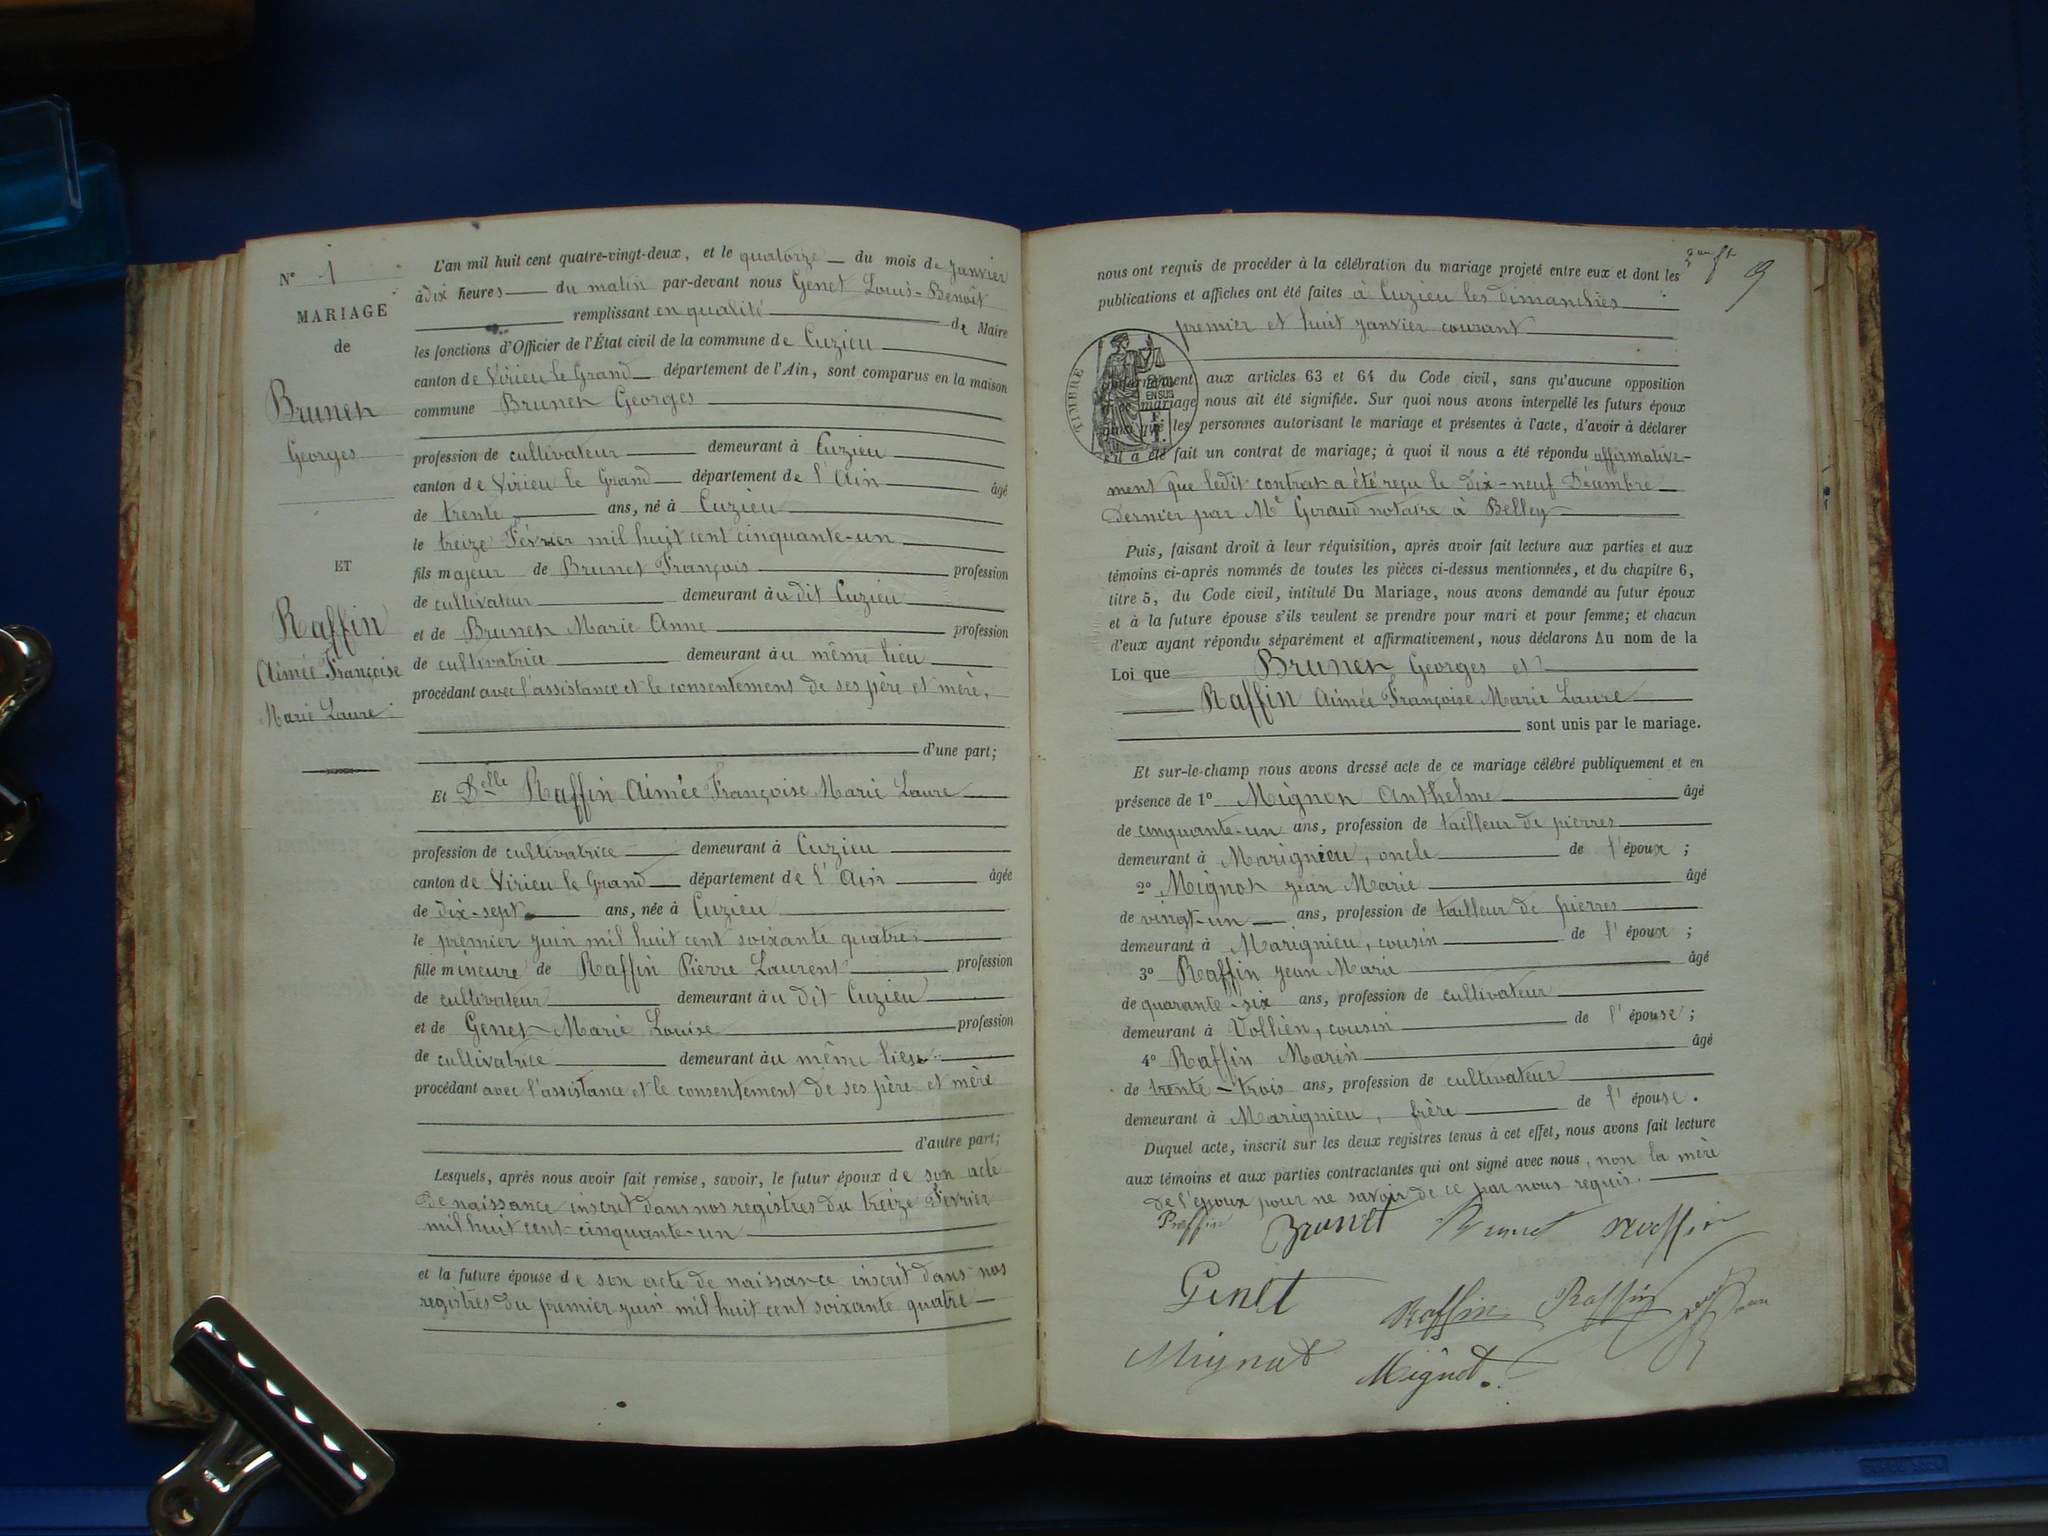 N° 1
MARIAGE
de
Brunet
Georges
ET
Raffin
Aimée Françoise
Marie Laure
L'an mil huit cent quatre-vingt-deux, et le quatorze du mois de Janvier
à dix heures du matin par-devant nous Genet Louis-Benoît
remplissant en qualité de Maire
les fonctions d'Officier de l'État civil de la commune de Cuzieu
canton de Virieu le Grand département de l'Ain, sont comparus en la maison
commune Brunet Georges
profession de cultivateur demeurant à Cuzieu
canton de Virieu le Grand département de l'Ain âgé
de trente ans, né à Cuzieu
le treize Février mil huit cent cinquante-un
fils majeur de Brunet François profession
de cultivateur demeurant àu dit Cuzieu
et de Brunet Marie Anne profession
de cultivatrice demeurant àu même lieu
procédant avec l'assistance et le consentement de ses père et mère,
d'une part;
Et Delle Raffin Aimée Françoise Marie Laure
profession de cultivatrice demeurant à Cuzieu
canton de Virieu le Grand département de l'Ain âgée
de dix-sept ans, née à Cuzieu
le premier juin mil huit cent soixante quatre
fille mineure de Raffin Pierre Laurent profession
de cultivateur demeurant àu dit Cuzieu
et de Genet Marie Louise profession
de cultivatrice demeurant àu même lieu
procédant avec l'assistance et le consentement de ses père et mère
d'autre part;
Lesquels, après nous avoir fait remise, savoir, le futur époux de son acte
de naissance inscrit dans nos registres du treize Février
mil huit cent cinquante-un
et la future épouse de son acte de naissance inscrit dans nos
registres du premier juin mil huit cent soixante quatre
9
nous ont requis de procéder à la célébration du mariage projeté entre eux et dont les
publications et affiches ont été faites à Cuzieu les dimanches
premier et huit janvier courant
TIMBRE
conformément aux articles 63 et 64 du Code civil, sans qu'aucune opposition
mariage nous ait été signifiée. Sur quoi nous avons interpellé les futurs époux
ainsi que les personnes autorisant le mariage et présentes à l'acte, d'avoir à déclarer
s'il a été fait un contrat de mariage; à quoi il nous a été répondu affirmative-
ment que ledit contrat a été reçu le dix-neuf Décembre
dernier par Me Giraud notaire à Belley
Puis, faisant droit à leur réquisition, après avoir fait lecture aux parties et aux
témoins ci-après nommés de toutes les pièces ci-dessus mentionnées, et du chapitre 6,
titre 5, du Code civil, intitulé Du Mariage, nous avons demandé au futur époux
et à la future épouse s'ils veulent se prendre pour mari et pour femme; et chacun
d'eux ayant répondu séparément et affirmativement, nous déclarons Au nom de la
Loi que Brunet Georges et
Raffin Aimée Françoise Marie Laure
sont unis par le mariage.
Et sur-le-champ nous avons dressé acte de ce mariage célébré publiquement et en
présence de 1° Mignot Anthelme âgé
de cinquante-un ans, profession de tailleur de pierres
demeurant à Marignieu, oncle de l'époux ;
2° Mignot Jean Marie âgé
de vingt-un ans, profession de tailleur de pierres
demeurant à Marignieu, cousin de l'époux ;
3° Raffin Jean Marie âgé
de quarante-six ans, profession de cultivateur
demeurant à Vollien, cousin de l'épouse ;
4° Raffin Marin âgé
de trente-trois ans, profession de cultivateur
demeurant à Marignieu, frère de l'épouse.
Duquel acte, inscrit sur les deux registres tenus à cet effet, nous avons fait lecture
aux témoins et aux parties contractantes qui ont signé avec nous, non la mère
de l'époux pour ne savoir de ce par nous requis.
Raffin Brunet Brunet Raffin
Genet Raffin Raffin
Mignot Mignot